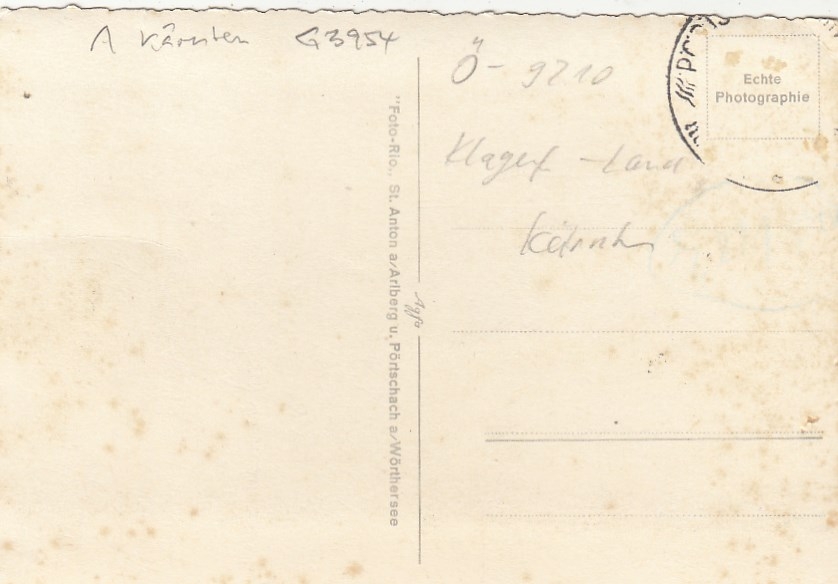 A Kärnten G3954
Ö - 9210
Klagenf - Land
Kärnten
Echte
Photographie
"Foto-Rio,, St. Anton a/Arlberg u. Pörtschach a/Wörthersee
Agfa